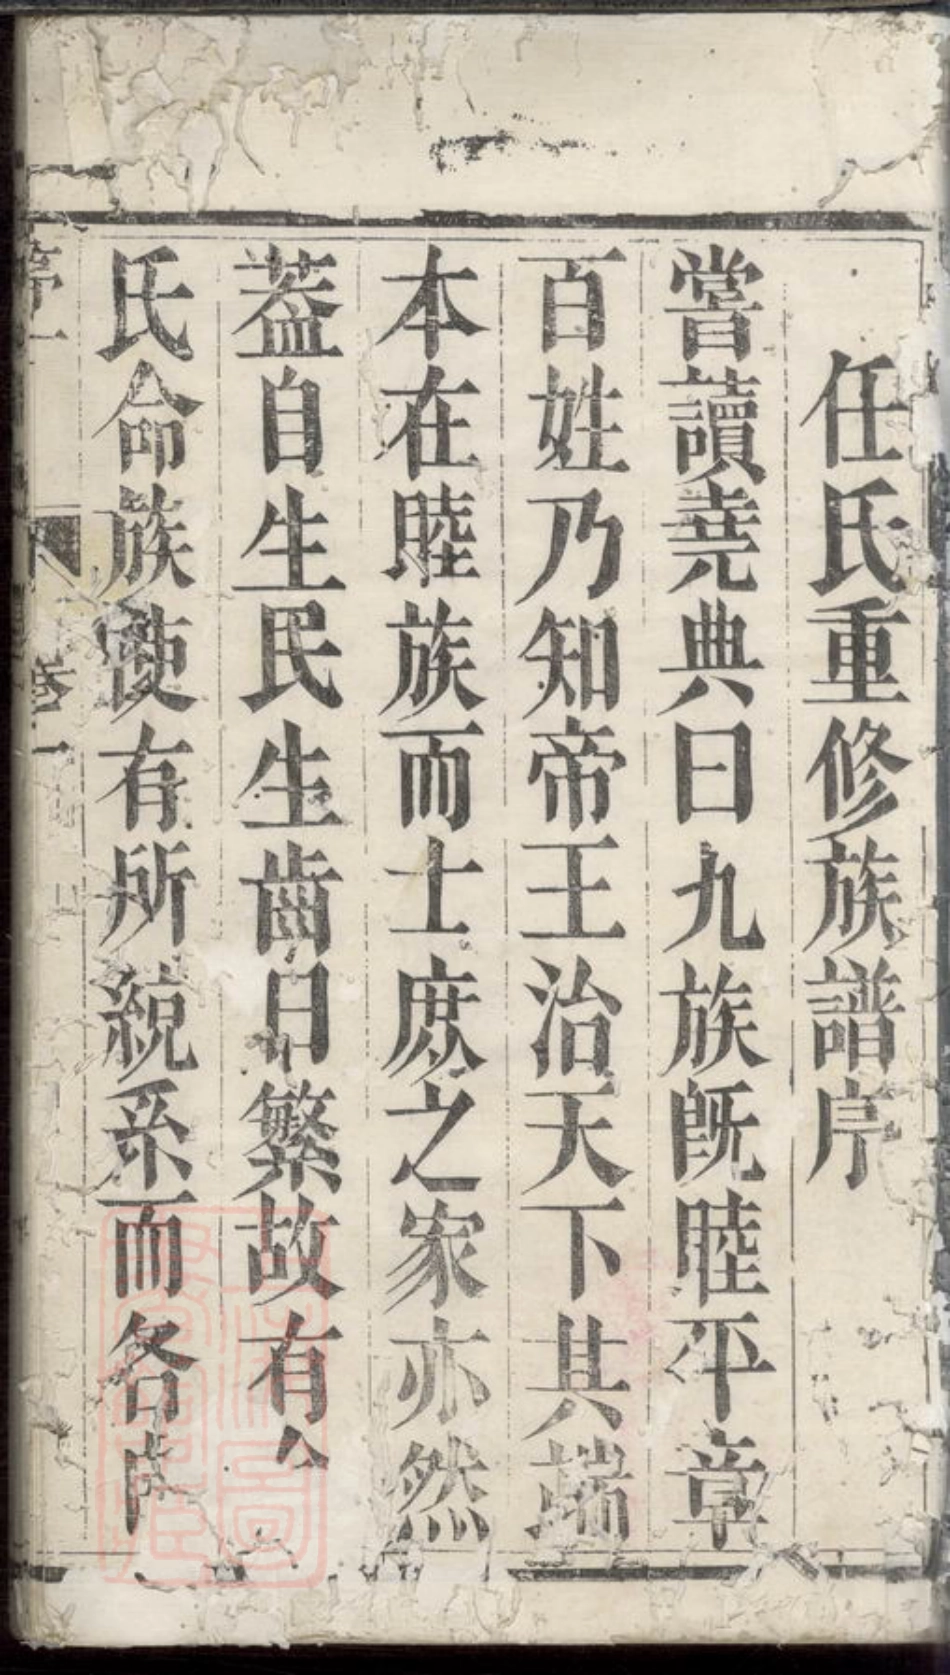 任氏重修族譜序
嘗讀堯典曰九族旣睦平章
百姓乃知帝王治天下其端
本在睦族而士庶之家亦然
葢自生民生齒日繁故有
氏命族使有所統系而各
卷一